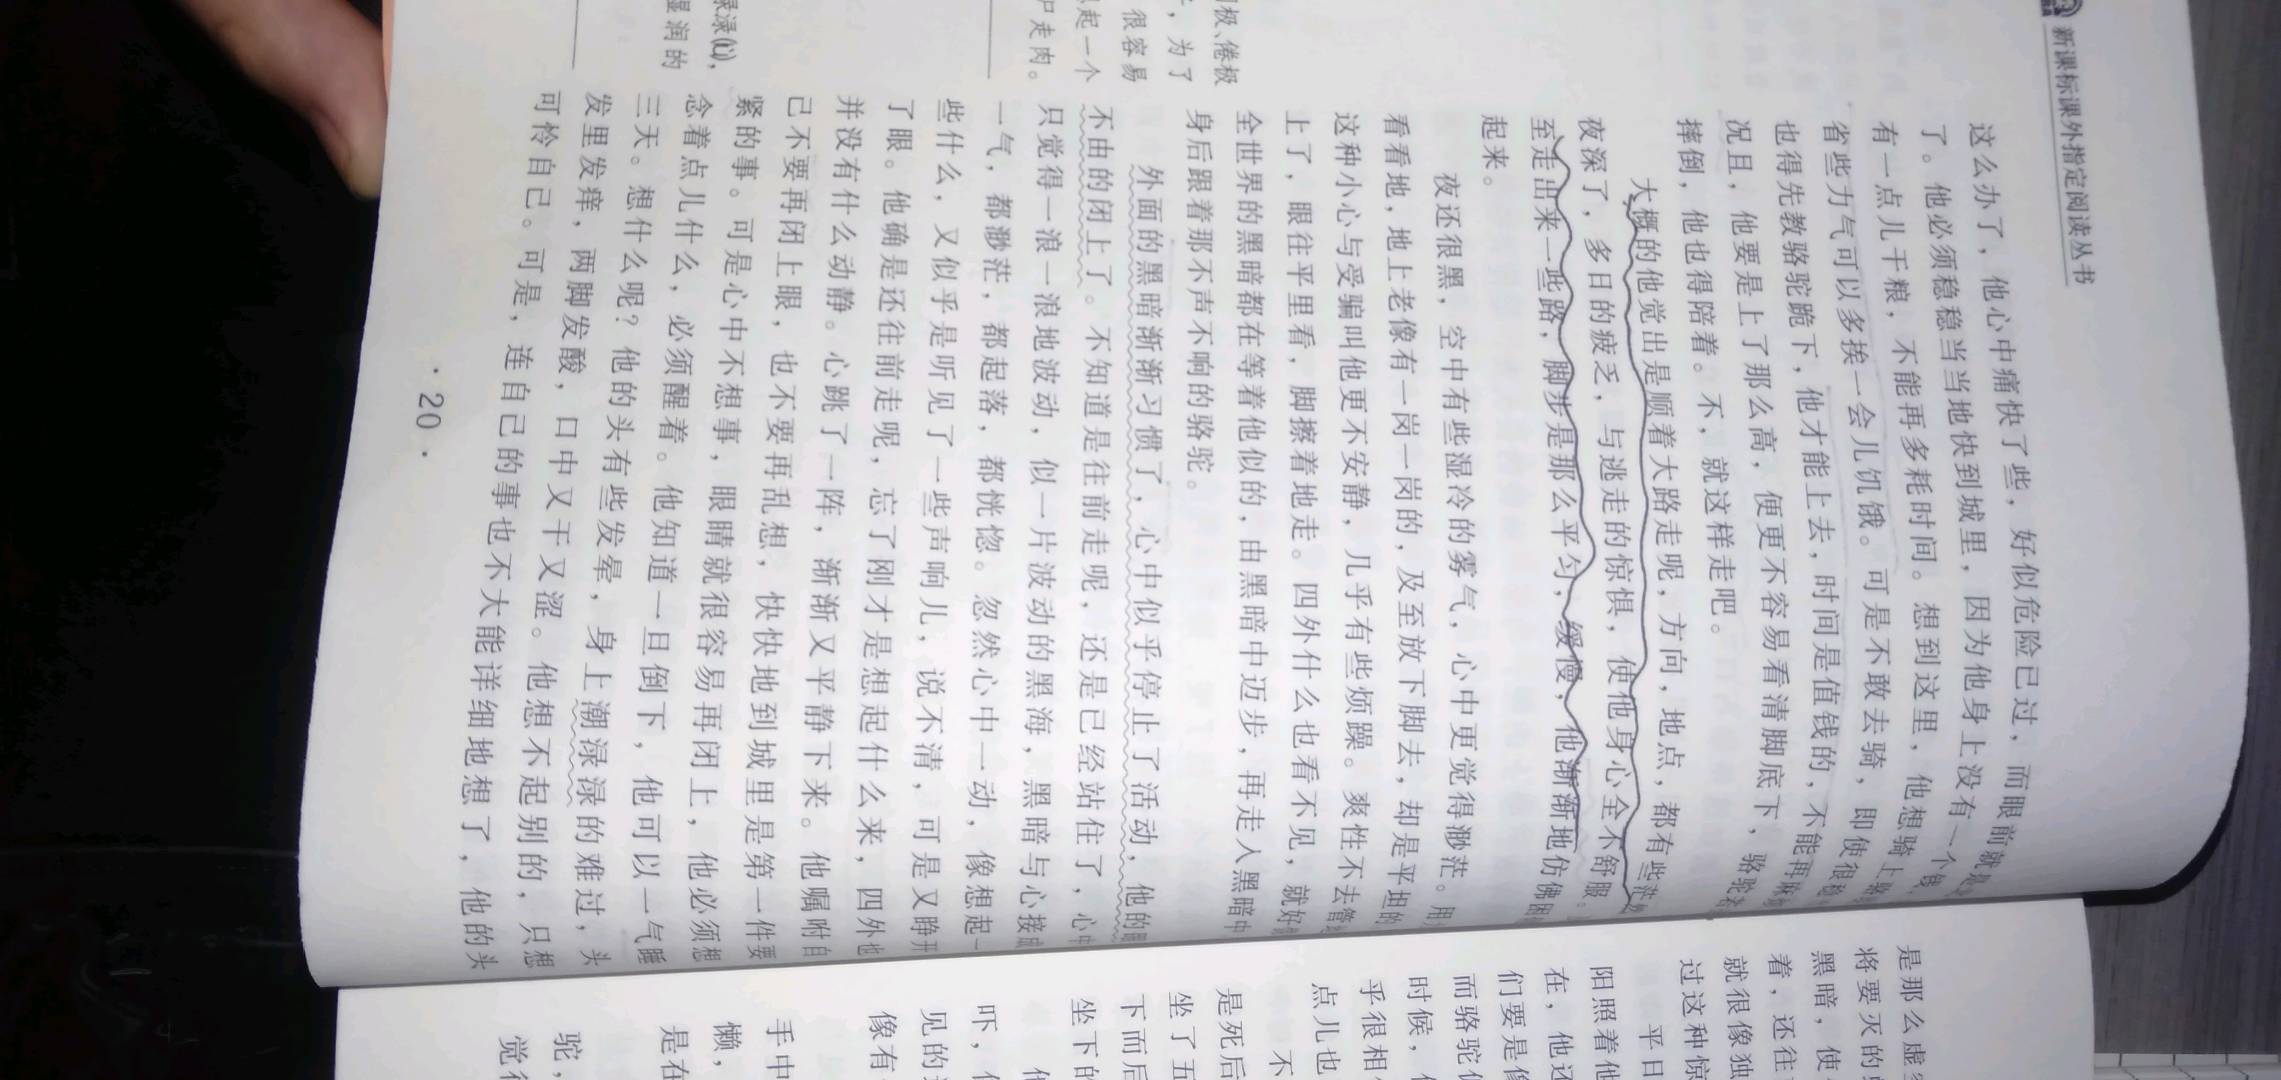 新课标课外指定阅读丛书
这么办了，他心中痛快了些，好似危险已过，而眼前就
了。他必须稳稳当当地快到城里，因为他身上没有一个钱
有一点儿干粮，不能再多耗时间。想到这里，他想骑上
省些力气可以多挨一会儿饥饿。可是不敢去骑，即使很稳
也得先教骆驼跪下，他才能上去，时间是值钱的，不能再麻
况且，他要是上了那么高，便更不容易看清脚底下，骆驼
摔倒，他也得陪着。不，就这样走吧。
大概的他觉出是顺着大路走呢，方向，地点，都有些茫
夜深了，多日的疲乏，与逃走的惊惧，使他身心全不舒服。
至走出来一些路，脚步是那么平匀，缓慢，他渐渐地仿佛困
起来。
夜还很黑，空中有些湿冷的雾气，心中更觉得渺茫。用
看看地，地上老像有一岗一岗的，及至放下脚去，却是平坦的
这种小心与受骗叫他更不安静，几乎有些烦躁。爽性不去管
上了，眼往平里看，脚擦着地走。四外什么也看不见，就好
全世界的黑暗都在等着他似的，由黑暗中迈步，再走入黑暗中
身后跟着那不声不响的骆驼。
外面的黑暗渐渐习惯了，心中似乎停止了活动，他的眼
不由的闭上了。不知道是往前走呢，还是已经站住了，心中
只觉得一浪一浪地波动，似一片波动的黑海，黑暗与心接成
一气，都渺茫，都起落，都恍惚。忽然心中一动，像想起一
些什么，又似乎是听见了一些声响儿，说不清，可是又睁开
了眼。他确是还往前走呢，忘了刚才是想起什么来，四外也
并没有什么动静。心跳了一阵，渐渐又平静下来。他嘱咐自
己不要再闭上眼，也不要再乱想，快快地到城里是第一件要
紧的事。可是心中不想事，眼睛就很容易再闭上，他必须想
念着点儿什么，必须醒着。他知道一旦倒下，他可以一气睡
三天。想什么呢？他的头有些发晕，身上潮渌渌的难过，头
发里发痒，两脚发酸，口中又干又涩。他想不起别的，只想
可怜自己。可是，连自己的事也不大能详细地想了，他的头
· 20 ·
极、倦极
，为了
很容易
起一个
尸走肉。
湿润的
是那么虚空
将要灭的
黑暗，使
着，还往
就很像独
过这种惊
平日
阳照着他
在，他还
们要是像
而骆驼
时候，
乎很相
点儿也
不
是死后
坐了五
下而后
坐下的
吓，
见的
像有
手中
懒，
是在
驼，
觉得